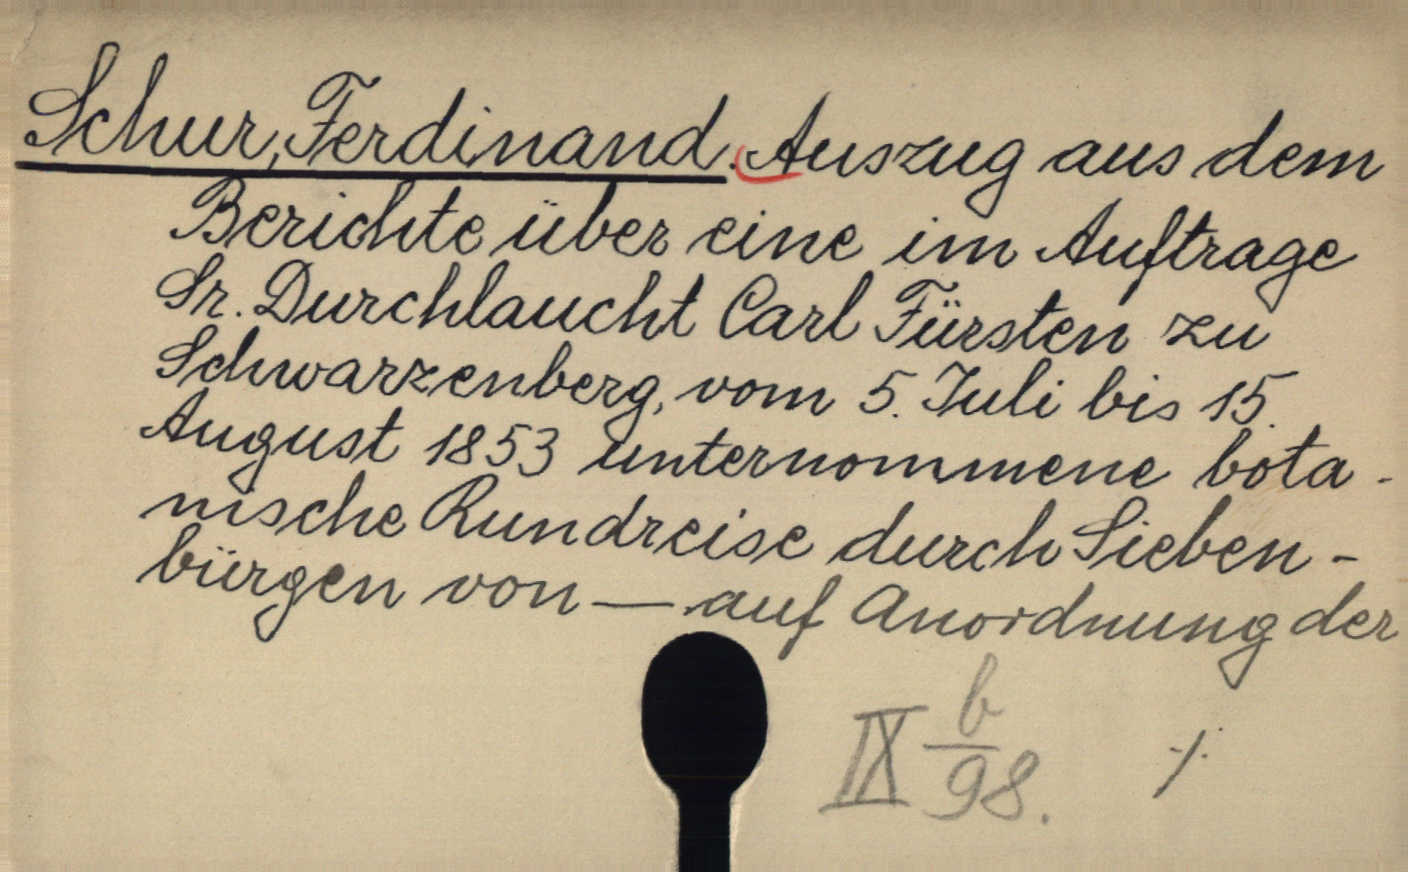 Schur, Ferdinand. Auszug aus dem
Berichte über eine im Auftrage
Sr. Durchlaucht Carl Fürsten zu
Schwarzenberg, vom 5. Juli bis 15.
August 1853 unternommene bota-
nische Rundreise durch Sieben-
bürgen von — auf Anordnung der
IX b/98. ./.